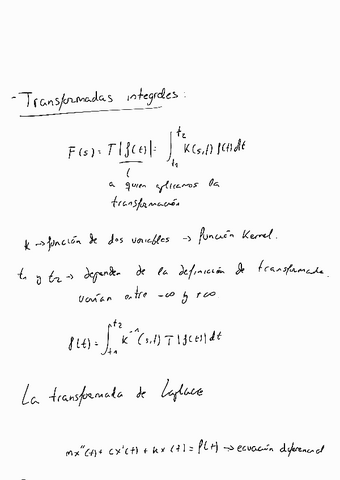 - Transformadas integrales:
F(s) = T|f(t)| = ∫_{t1}^{t2} K(s,t) f(t) dt
a quien aplicamos la
transformación
K → función de dos variables → función Kernel.
t1 y t2 → dependen de la definición de transformada.
varían entre -∞ y +∞
f(t) = ∫_{t1}^{t2} K^{-1}(s,t) T|f(t)| dt
La transformada de Laplace
mx''(t) + cx'(t) + kx(t) = f(t) → ecuación diferencial